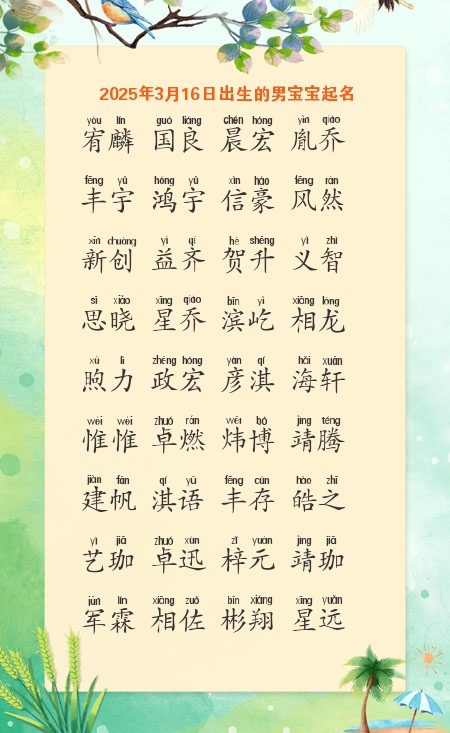 2025年3月16日出生的男宝宝起名
yòu lín guó liáng chén hóng yìn qiáo
宥麟 国良 晨宏 胤乔
fēng yǔ hóng yǔ xìn háo fēng rán
丰宇 鸿宇 信豪 风然
xīn chuàng yì qí hè shēng yì zhì
新创 益齐 贺升 义智
sī xiǎo xīng qiáo bīn yì xiāng lóng
思晓 星乔 滨屹 相龙
xù lì zhèng hóng yàn qí hǎi xuān
煦力 政宏 彦淇 海轩
wéi wéi zhuó rán wěi bó jìng téng
惟惟 卓燃 炜博 靖腾
jiàn fān qí yǔ fēng cún hào zhī
建帆 淇语 丰存 皓之
yì jiā zhuó xùn zǐ yuán jìng jiā
艺珈 卓迅 梓元 靖珈
jūn lín xiāng zuǒ bīn xiáng xīng yuǎn
军霖 相佐 彬翔 星远